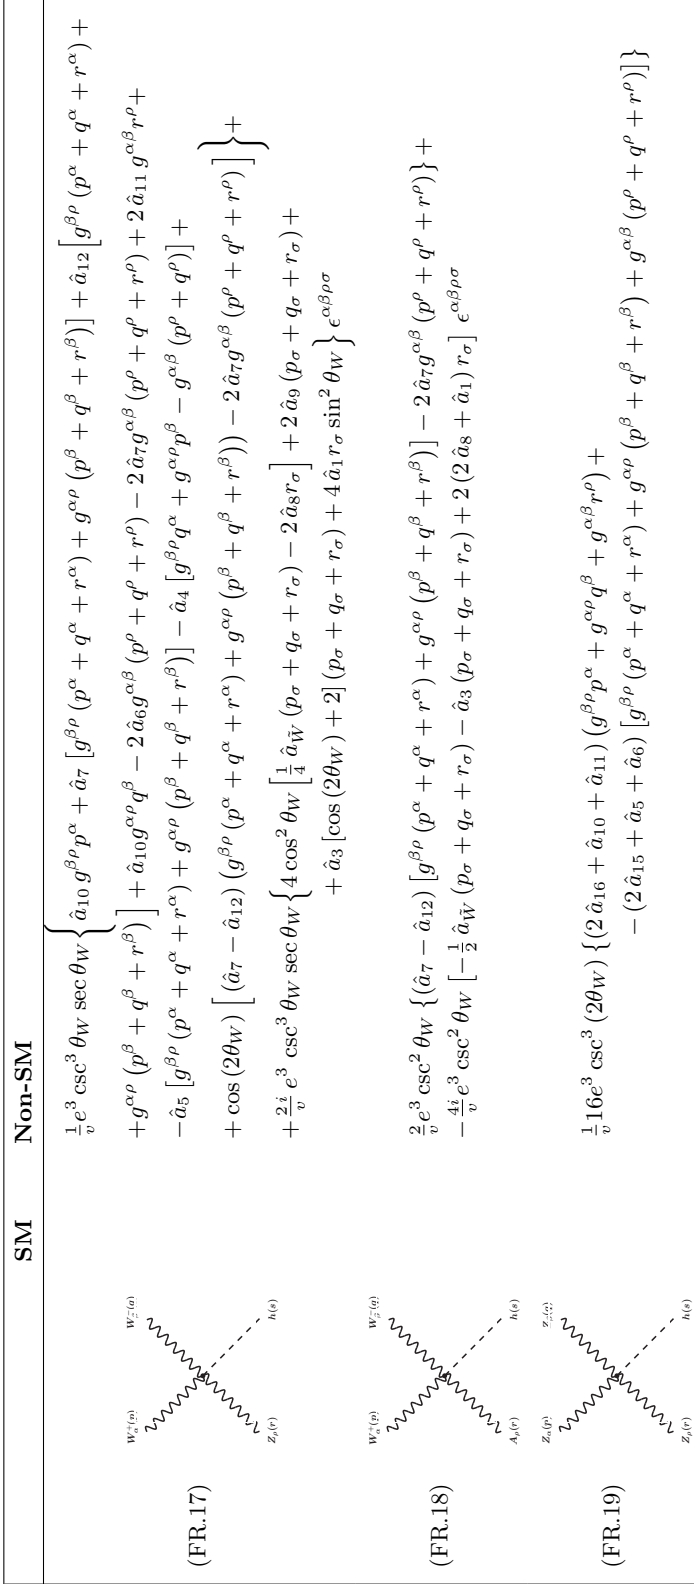 SM Non-SM
(FR.17)
W⁺_α(p) W⁻_β(q)
Z_ρ(r) h(s)
\frac{1}{v}e^3 \csc^3 θ_W \sec θ_W \Big\{ \hat{a}_{10} g^{βρ} p^α + \hat{a}_7 [g^{βρ} (p^α + q^α + r^α) + g^{αρ} (p^β + q^β + r^β)] + \hat{a}_{12} [g^{βρ} (p^α + q^α + r^α) +
+ g^{αρ} (p^β + q^β + r^β)] + \hat{a}_{10} g^{αρ} q^β − 2\hat{a}_6 g^{αβ} (p^ρ + q^ρ + r^ρ) − 2\hat{a}_7 g^{αβ} (p^ρ + q^ρ + r^ρ) + 2\hat{a}_{11} g^{αβ} r^ρ +
−\hat{a}_5 [g^{βρ} (p^α + q^α + r^α) + g^{αρ} (p^β + q^β + r^β)] − \hat{a}_4 [g^{βρ} q^α + g^{αρ} p^β − g^{αβ} (p^ρ + q^ρ)] +
+ \cos (2θ_W) \Big[ (\hat{a}_7 − \hat{a}_{12}) (g^{βρ} (p^α + q^α + r^α) + g^{αρ} (p^β + q^β + r^β)) − 2\hat{a}_7 g^{αβ} (p^ρ + q^ρ + r^ρ) \Big] \Big\} +
+ \frac{2i}{v} e^3 \csc^3 θ_W \sec θ_W \Big\{ 4 \cos^2 θ_W [\frac{1}{4} \hat{a}_{\tilde{W}} (p_σ + q_σ + r_σ) − 2\hat{a}_8 r_σ] + 2\hat{a}_9 (p_σ + q_σ + r_σ) +
+ \hat{a}_3 [\cos (2θ_W) + 2] (p_σ + q_σ + r_σ) + 4\hat{a}_1 r_σ \sin^2 θ_W \Big\} ε^{αβρσ}
(FR.18)
W⁺_α(p) W⁻_β(q)
A_ρ(r) h(s)
\frac{2}{v}e^3 \csc^2 θ_W \{(\hat{a}_7 − \hat{a}_{12}) [g^{βρ} (p^α + q^α + r^α) + g^{αρ} (p^β + q^β + r^β)] − 2\hat{a}_7 g^{αβ} (p^ρ + q^ρ + r^ρ)\} +
− \frac{4i}{v} e^3 \csc^2 θ_W [−\frac{1}{2} \hat{a}_{\tilde{W}} (p_σ + q_σ + r_σ) − \hat{a}_3 (p_σ + q_σ + r_σ) + 2 (2\hat{a}_8 + \hat{a}_1) r_σ] ε^{αβρσ}
(FR.19)
Z_α(p) Z_β(q)
Z_ρ(r) h(s)
\frac{1}{v}16e^3 \csc^3 (2θ_W) \{(2\hat{a}_{16} + \hat{a}_{10} + \hat{a}_{11}) (g^{βρ} p^α + g^{αρ} q^β + g^{αβ} r^ρ) +
− (2\hat{a}_{15} + \hat{a}_5 + \hat{a}_6) [g^{βρ} (p^α + q^α + r^α) + g^{αρ} (p^β + q^β + r^β) + g^{αβ} (p^ρ + q^ρ + r^ρ)]\}